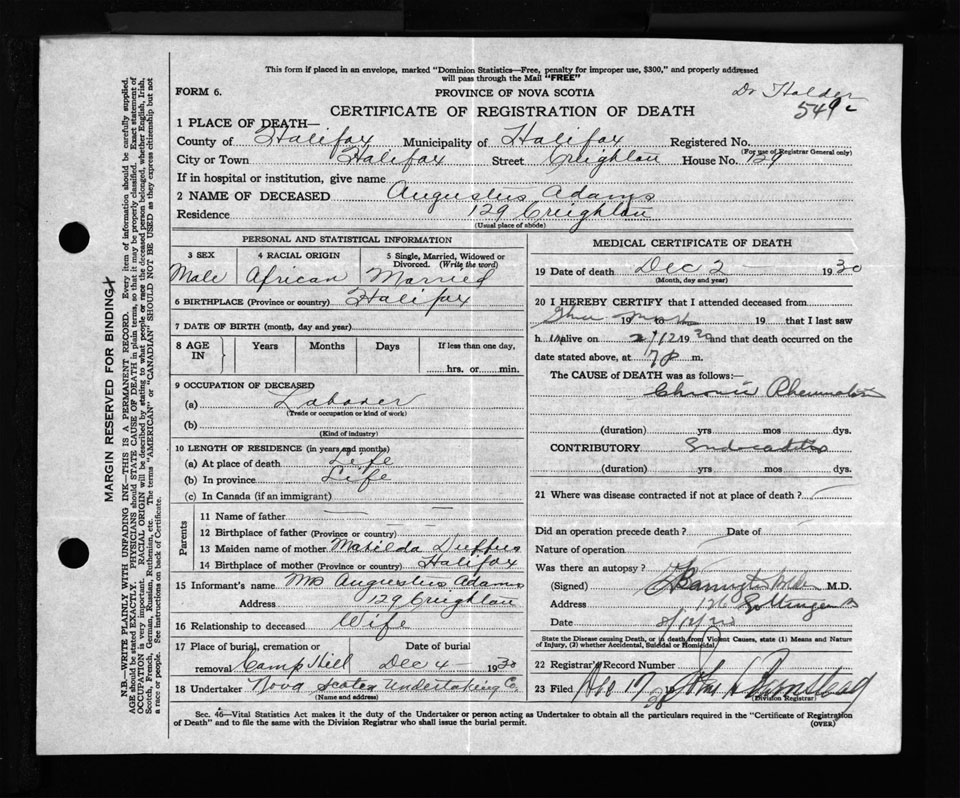 This form if placed in an envelope, marked "Dominion Statistics—Free, penalty for improper use, $300," and properly addressed
will pass through the Mail "FREE"
FORM 6.
PROVINCE OF NOVA SCOTIA
Dr Holder
CERTIFICATE OF REGISTRATION OF DEATH
549c
1 PLACE OF DEATH—
County of Halifax Municipality of Halifax Registered No.
(For use of Registrar General only)
City or Town Halifax Street Creighton House No. 129
If in hospital or institution, give name
2 NAME OF DECEASED Augustus Adams
Residence 129 Creighton
(Usual place of abode)
PERSONAL AND STATISTICAL INFORMATION
3 SEX
4 RACIAL ORIGIN
5 Single, Married, Widowed or
Divorced. (Write the word)
Male African Married
6 BIRTHPLACE (Province or country) Halifax
7 DATE OF BIRTH (month, day and year)
8 AGE
IN
Years Months Days If less than one day,
hrs. or min.
9 OCCUPATION OF DECEASED
(a) Laborer
(Trade or occupation or kind of work)
(b)
(Kind of industry)
10 LENGTH OF RESIDENCE (in years and months)
(a) At place of death Life
(b) In province Life
(c) In Canada (if an immigrant)
Parents
11 Name of father
12 Birthplace of father (Province or country)
13 Maiden name of mother Matilda Duffus
14 Birthplace of mother (Province or country) Halifax
15 Informant's name Mrs Augustus Adams
Address 129 Creighton
16 Relationship to deceased Wife
17 Place of burial, cremation or Date of burial
removal Camp Hill Dec 4 1930
18 Undertaker Nova Scotia Undertaking Co
(Name and address)
MEDICAL CERTIFICATE OF DEATH
19 Date of death Dec 2 1930
(Month, day and year)
20 I HEREBY CERTIFY that I attended deceased from
19 to 19 that I last saw
h im alive on 2/12/1930 and that death occurred on the
date stated above, at 7 P m.
The CAUSE of DEATH was as follows:
Chronic Rheumatism
(duration) yrs mos dys.
CONTRIBUTORY Endocarditis
(duration) yrs mos dys.
21 Where was disease contracted if not at place of death?
Did an operation precede death? Date of
Nature of operation
Was there an autopsy?
(Signed) Holder M.D.
Address Gottingen St
Date
State the Disease causing Death, or in death from Violent Causes, state (1) Means and Nature
of Injury, (2) whether Accidental, Suicidal or Homicidal
22 Registrar's Record Number
23 Filed 17 19 John
(Division Registrar)
Sec. 46—Vital Statistics Act makes it the duty of the Undertaker or person acting as Undertaker to obtain all the particulars required in the "Certificate of Registration
of Death" and to file the same with the Division Registrar who shall issue the burial permit.
(OVER)
MARGIN RESERVED FOR BINDING
N.B.—WRITE PLAINLY WITH UNFADING INK—THIS IS A PERMANENT RECORD. Every item of information should be carefully supplied.
AGE should be stated EXACTLY. PHYSICIANS should STATE CAUSE OF DEATH in plain terms, so that it may be properly classified. Exact statement of
OCCUPATION is very important. RACIAL ORIGIN will be described by stating to what people or race the deceased person belonged, whether English, Irish,
Scotch, French, German, Russian, Ruthenian, etc. The terms "AMERICAN" or "CANADIAN" SHOULD NOT BE USED as they express citizenship but not
a race or people. See instructions on back of Certificate.